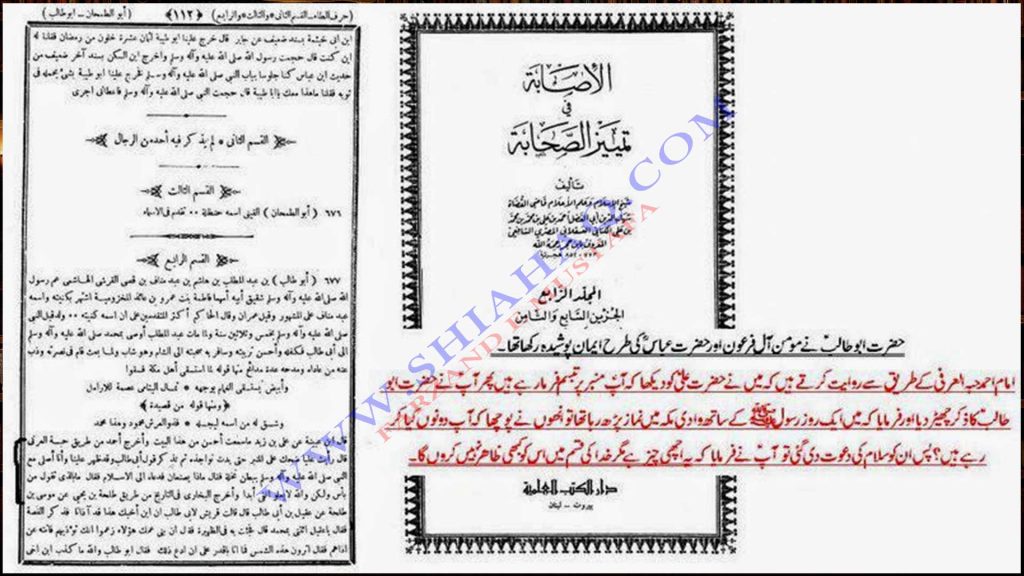 (حرف الطاء - القسم الثانى والثالث والرابع) ﴿١١٢﴾ (أبو الطمحان - ابو طالب)
ابن ابى خيثمة بسند ضعيف عن جابر قال خرج علينا ابو طيبة لثمان عشرة خلون من رمضان فقلنا له
اين كنت قال حجمت رسول الله صلى الله عليه وآله وسلم واخرج ابن السكن بسند آخر ضعيف من
حديث ابن عباس كنا جلوسا بباب النبى صلى الله عليه وآله وسلم فخرج علينا ابو طيبة بشئ يحمله فى
ثوبه فقلنا ماهذا معك يا ابا طيبة قال حجمت النبى صلى الله عليه وآله وسلم فاعطانى اجرى
القسم الثانى * لم يذكر فيه أحد من الرجال
القسم الثالث
٦٧٦ (أبو الطمحان) القينى اسمه حنظلة ٠٠ تقدم فى الاسماء
القسم الرابع
٦٧٧ (أبو طالب) بن عبد المطلب بن هاشم بن عبد مناف بن قصى القرشى الهاشمى عم رسول
الله صلى الله عليه وآله وسلم شقيق أبيه أمهما فاطمة بنت عمرو بن عائذ المخزومية اشتهر بكنيته واسمه
عبد مناف على المشهور وقيل عمران وقال الحاكم أكثر المتقدمين على ان اسمه كنيته ٠٠ ولد قبل النبى
صلى الله عليه وآله وسلم بخمس وثلاثين سنة ولما مات عبد المطلب أوصى بمحمد صلى الله عليه وآله وسلم
الى أبى طالب فكفله وأحسن تربيته وسافر به صحبته الى الشام وهو شاب ولما بعث قام فى نصرته وذب
عنه من عاداه ومدحه عدة مدائح منها قوله لما استسقى أهل مكة فسقوا
وأبيض يستسقى الغمام بوجهه * ثمال اليتامى عصمة للارامل
﴿ومنها قوله من قصيدة﴾
وشق له من اسمه ليجله * فذو العرش محمود وهذا محمد
قال ابن عيينة عن على بن زيد ماسمعت أحسن من هذا البيت وأخرج أحمد من طريق حبة العرنى
قال رأيت عليا ضحك على المنبر حتى بدت نواجذه ثم تذكر قول أبى طالب وقد ظهر علينا وأنا أصلى مع
النبى صلى الله عليه وآله وسلم ببطن نخلة فقال ماذا يصنعان فدعاه الى الاسلام فقال مابالذى تقول من
بأس ولكن والله لا أبدا وأخرج البخارى فى التاريخ من طريق طلحة بن يحيى عن موسى بن
طلحة عن عقيل بن أبى طالب قال قالت قريش لابى طالب ان ابن أخيك هذا قد آذانا فذكر القصة
فقال ياعقيل ائتنى بمحمد قال فجئت به فى الظهيرة فقال ان بنى عمك هؤلاء زعموا انك تؤذيهم فانته عن
أذاهم فقال أترون هذه الشمس فما أنا باقدر على ان ادع ذلك فقال ابو طالب والله ما كذب ابن اخى
الإصابة
في
تمييز الصحابة
تأليف
شيخ الإسلام وعلم الأعلام قاضي القضاة
شهاب الدين أبي الفضل أحمد بن علي بن محمد بن محمد
بن علي الكناني العسقلاني المصري الشافعي
المعروف بابن حجر رحمه الله
٧٧٣-٨٥٢ هجرية
المجلد الرابع
الجزءين السابع والثامن
حضرت ابو طالبؑ نے مومن آل فرعون اور حضرت عباس کی طرح ایمان پوشیدہ رکھا تھا۔
امام احمد حبہ العرنی کے طریق سے روایت کرتے ہیں کہ میں نے حضرت علیؑ کو دیکھا کہ آپ منبر پر تبسم فرما رہے ہیں پھر آپ نے حضرت ابو
طالبؑ کا ذکر چھیڑ دیا اور فرمایا کہ میں ایک روز رسول ﷺ کے ساتھ وادی مکہ میں نماز پڑھ رہا تھا تو انھوں نے پوچھا کہ آپ دونوں کیا کر
رہے ہیں؟ پس ان کو سلام کی دعوت دی گئی تو آپ نے فرمایا کہ یہ اچھی چیز ہے مگر خدا کی قسم میں اس کو کبھی ظاہر نہیں کروں گا۔
دار الكتب العلمية
بيروت - لبنان
WWW.SHIAHAQ.COM
FARZAND E MUSTAFA